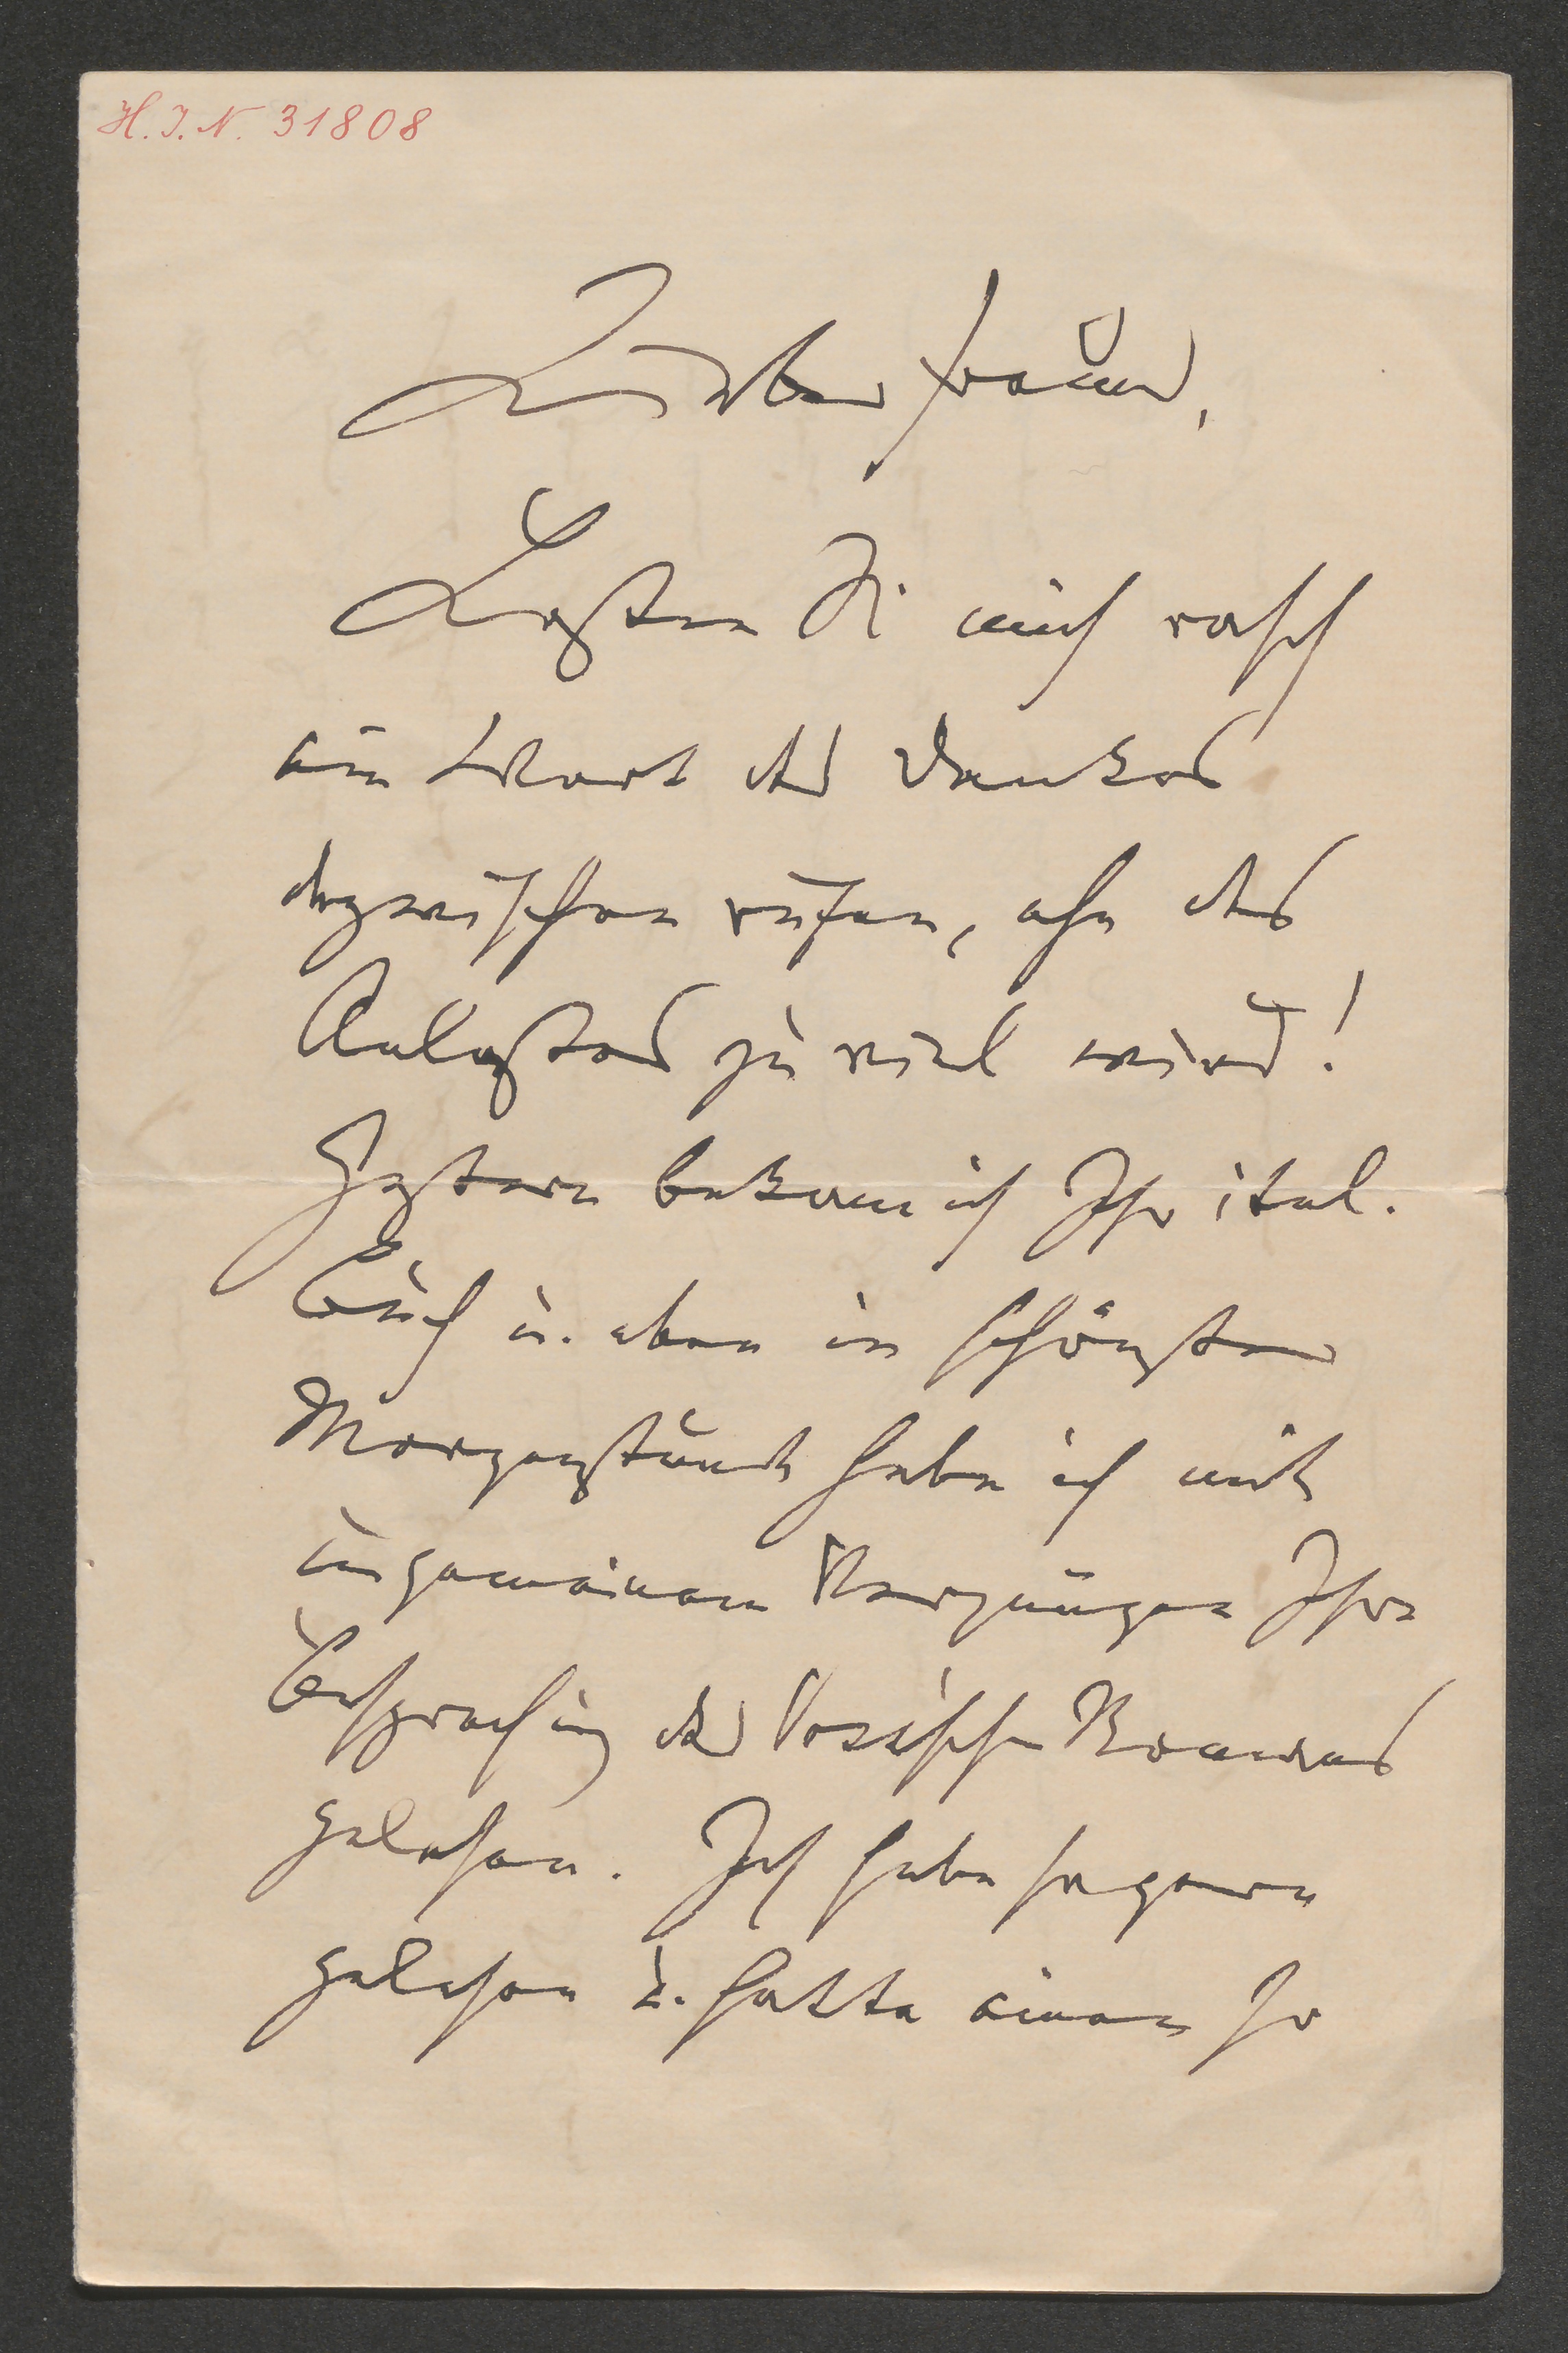 H. I. N. 31808
Lieber Freund,
Lassen Sie mich rasch
ein Wort des Dankes
dazwischen rufen, ehe des
Anlasses zu viel wird!
Gestern bekam ich Ihr ital.
Buch u. eben in schönster
Morgenstunde habe ich mit
ungemeinem Vergnügen Ihre
Besprechung des Vossischen Romans
gelesen. Ich habe sie gern
gelesen u. hatte einen so